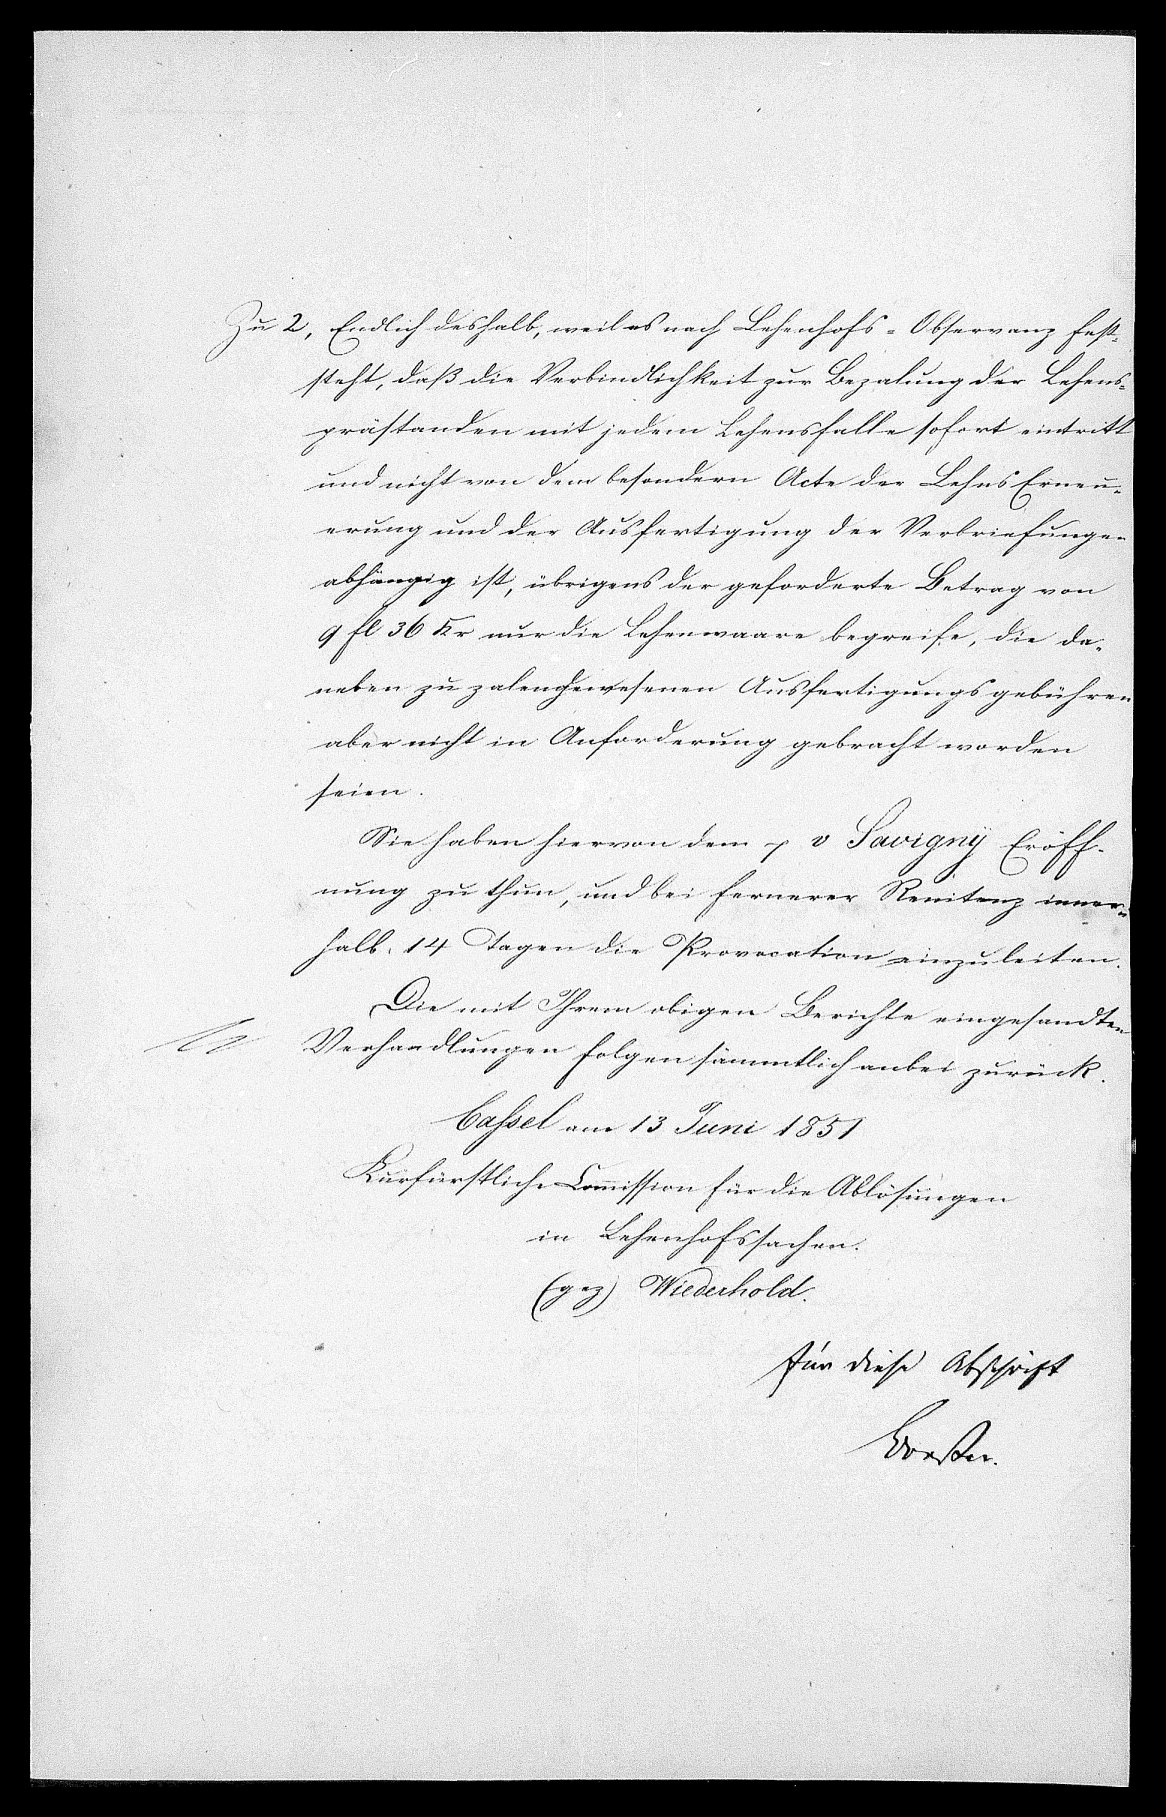 Zu 2, Endlich deshalb, weil es nach Lehenhofs-Observanz fest-
steht, daß die Verbindlichkeit zur Bezalung der Lehens-
prästanden mit jedem Lehensfalle sofort eintritt
und nicht von dem besondern Acte der Lehns Erneu-
erung und der Ausfertigung der Verbriefungen
abhängig ist, übrigens der geforderte Betrag von
9 fl 36 Kr nur die Lehenwaare begreife, die da-
neben zu zalen gewesenen Ausfertigungsgebühren
aber nicht in Anforderung gebracht worden
seien.
Sie haben hiervon dem p v Savigny Eröff-
nung zu thun, und bei fernerer Renitenz inner-
halb 14 Tagen die Provocation einzuleiten.
Die mit Ihrem obigen Berichte eingesandten
Verhandlungen folgen sämmtlich anbei zurück.
Cassel am 13 Juni 1851
Kurfürstliche Commission für die Ablösungen
in Lehenhofssachen.
(gez) Wiederhold.
für diese Abschrift